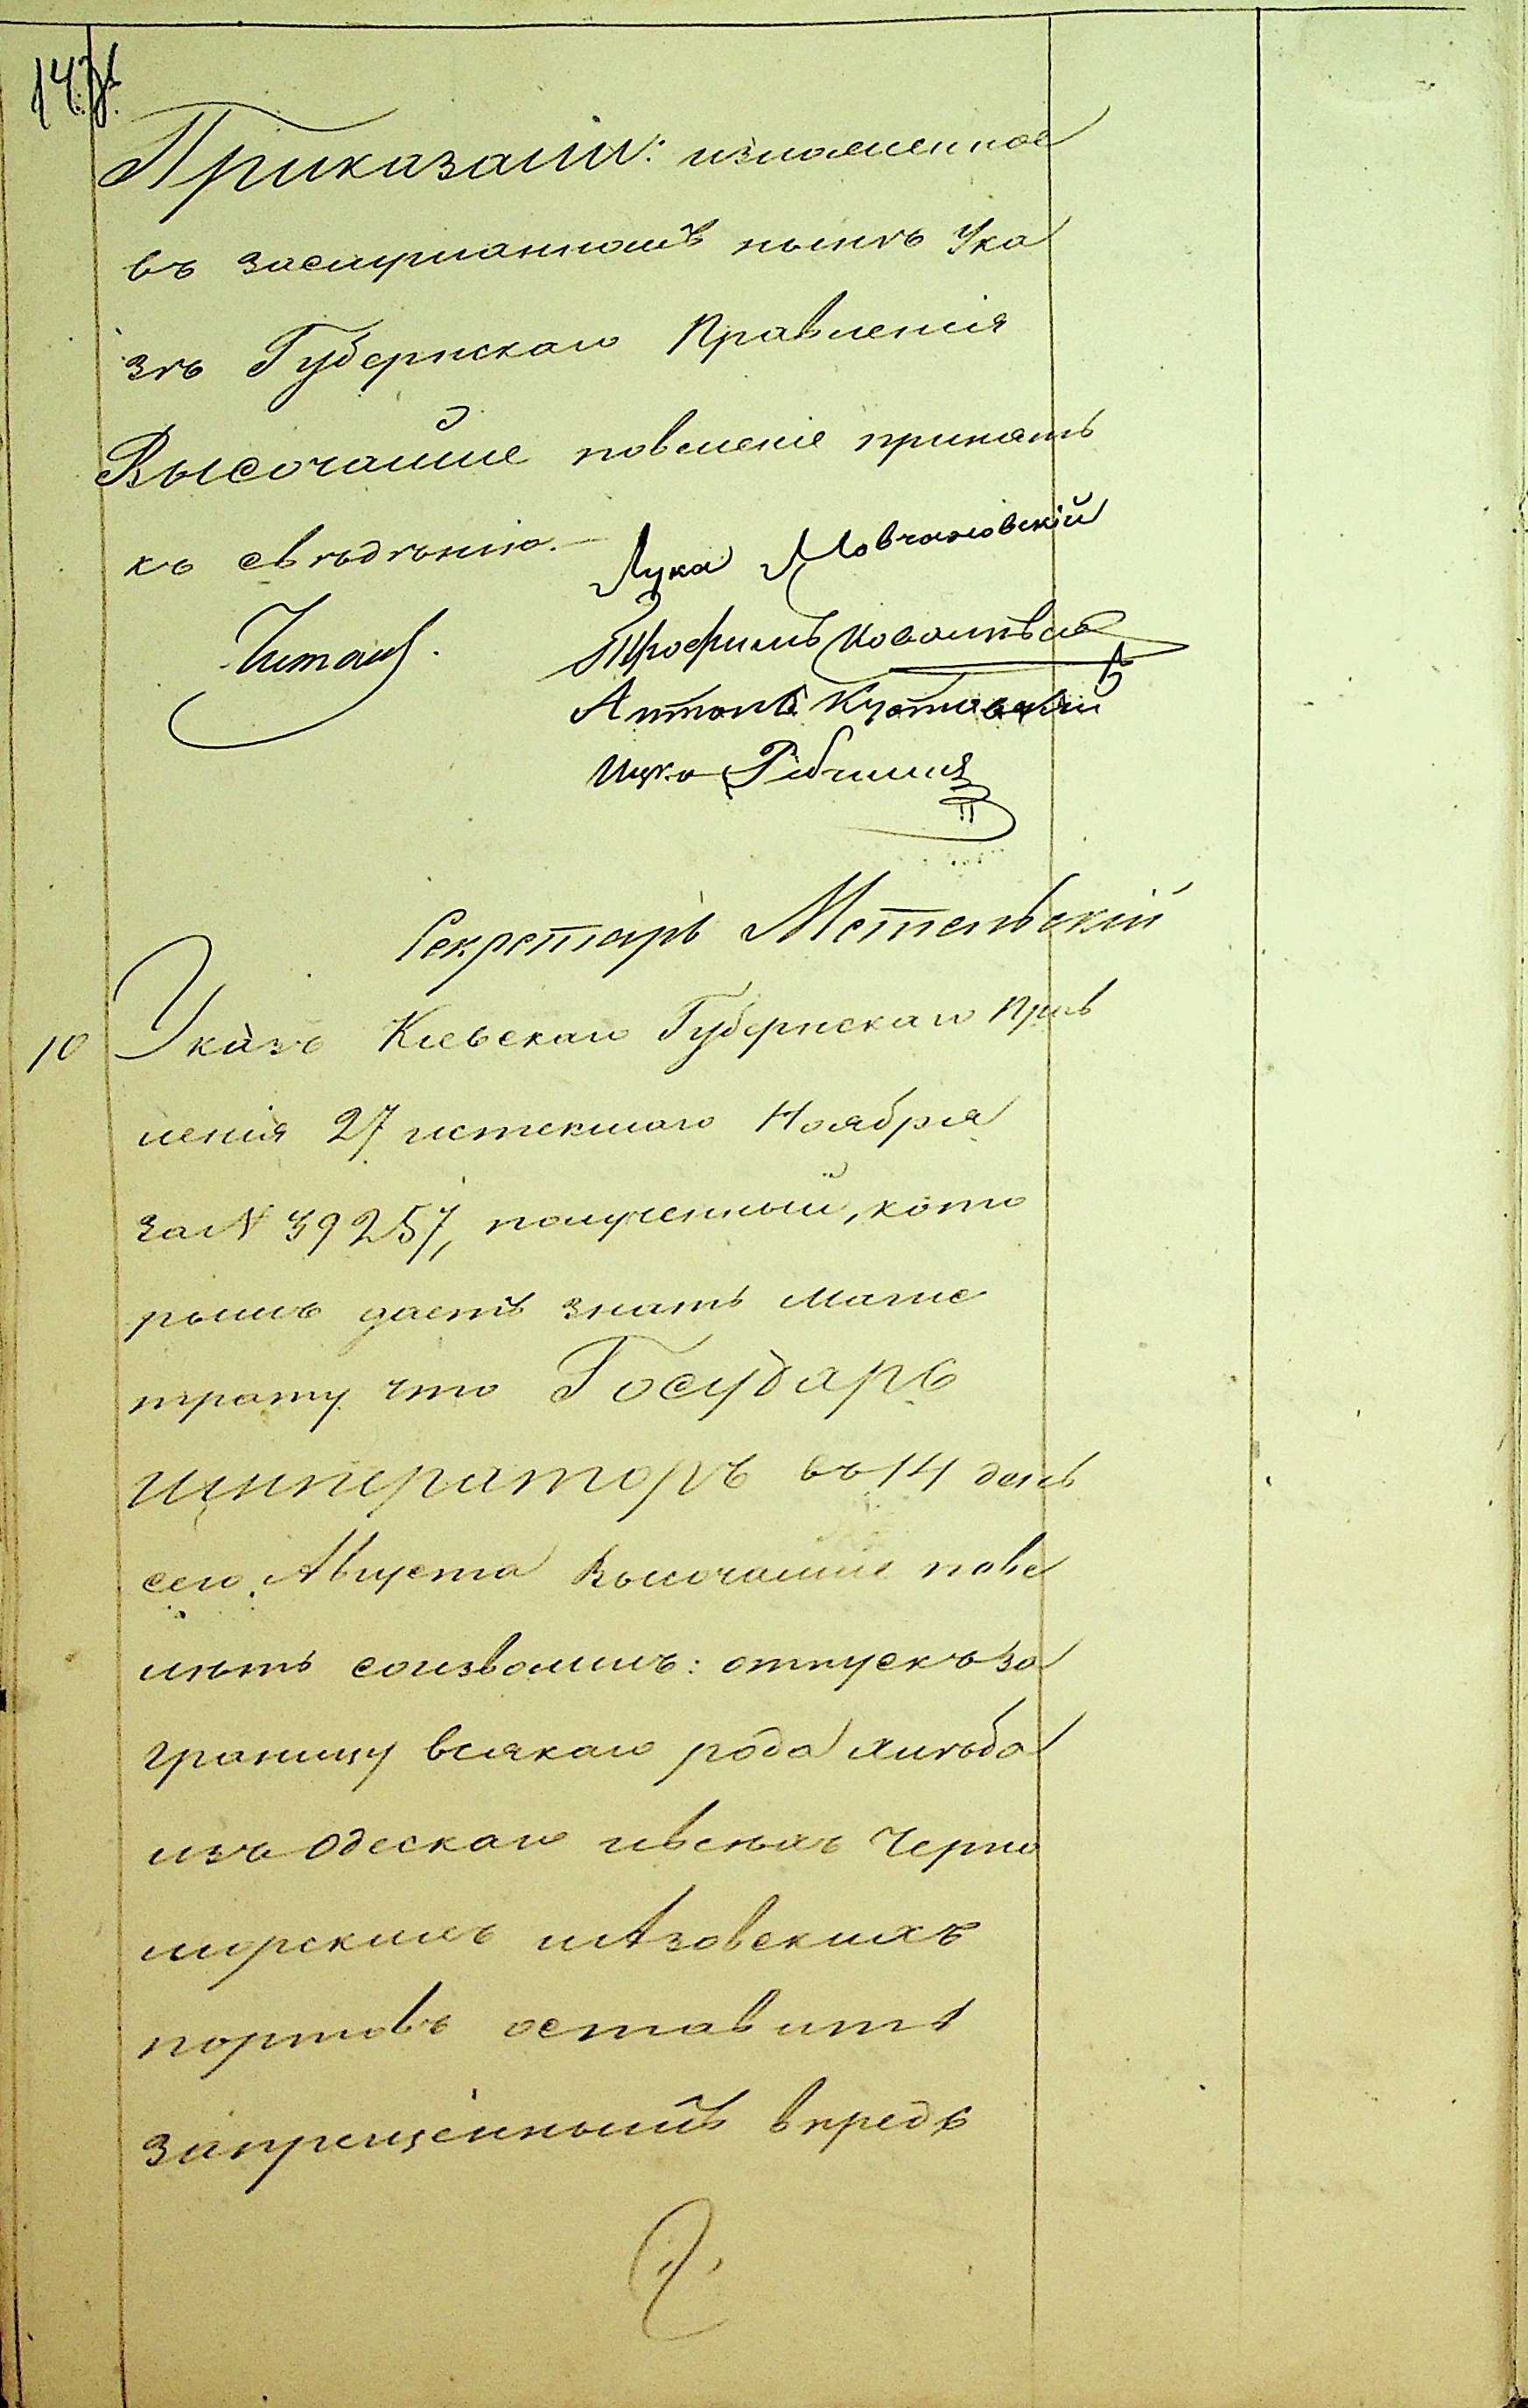 Приказали: изъясненное
въ заслушанномъ нынѣ Ука
зѣ Губернскаго Правленія
Высочайше повеленіе принять
къ свѣдѣнію.—
Лука Мовчановскій
Читалъ.
Трофимъ
Антонъ
Ицко
Секретарь Метельскій
10 Указъ Кіевскаго Губернскаго Прав
ленія 27 истекшаго Ноября
за № 39257, полученный, кото
рымъ даетъ знать Магис
трату что Государь
Императоръ въ 14 день
сего Августа Высочайше пове
лѣть соизволилъ: отпускъ за
границу всякаго рода хлѣба
изъ Одескаго и всѣхъ Черно
морскихъ и Азовскихъ
портовъ оставить
запрещеннымъ впредь